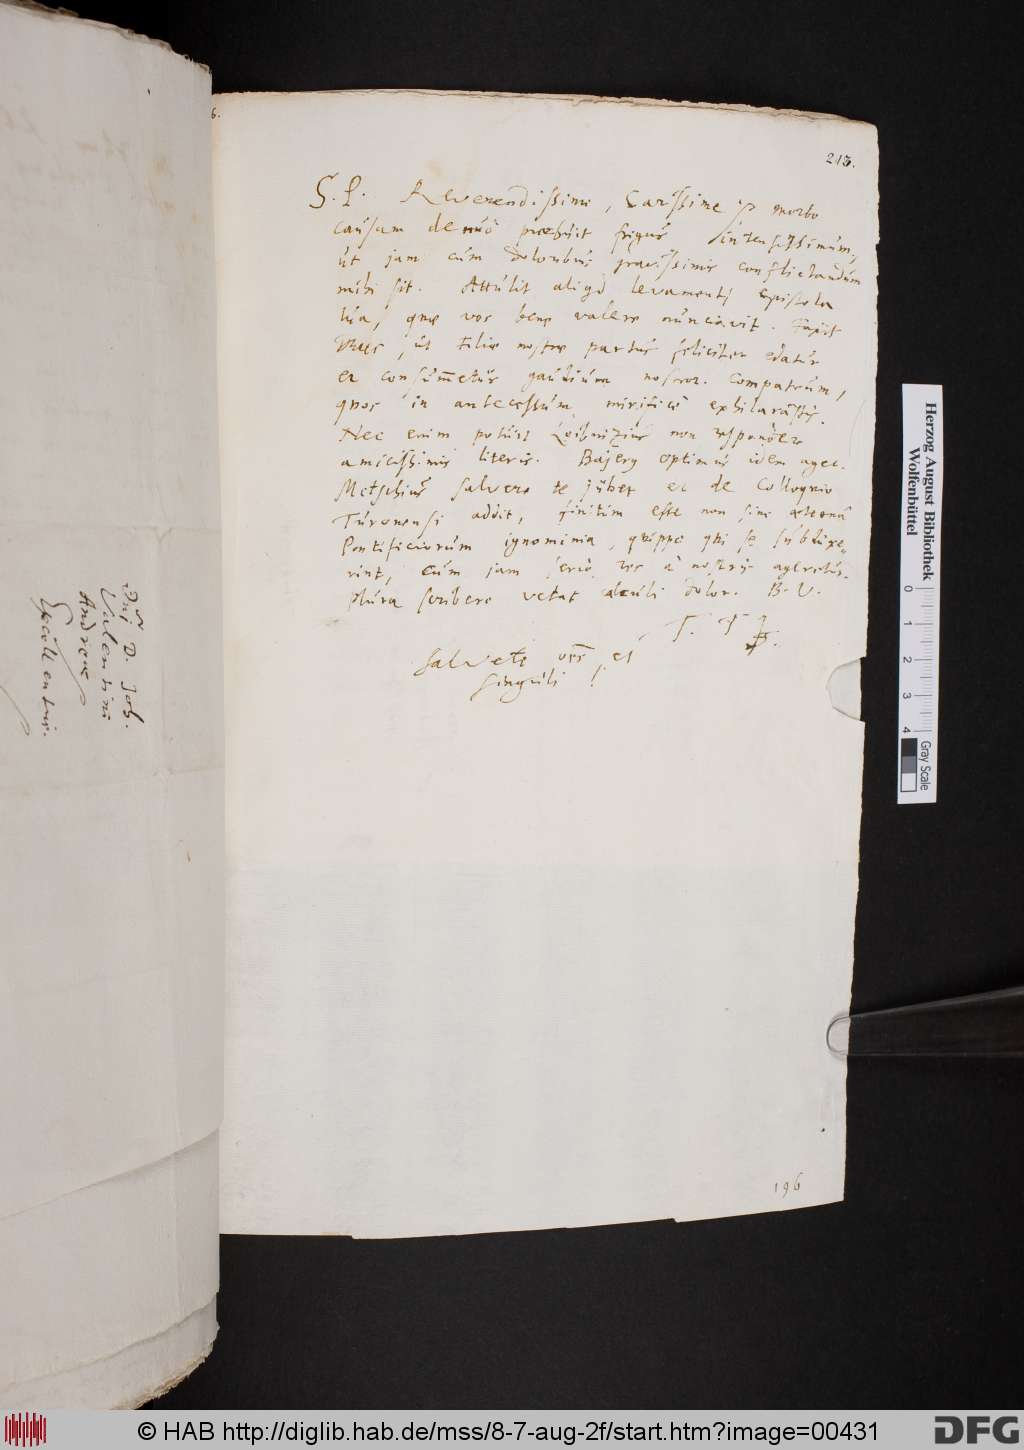 6.
213.
S. P. Reverendissime, Carissime morbo
causam denuò præbuit frigus intensissimum,
ut jam cum doloribus gravissimis conflictandum
mihi sit. Attulit aliqd levamenti Epistola
tua, quæ vos bene valere nunciavit. Faxit
ut filiæ nostræ partus feliciter edatur
et consum̄etur gaudium nostror. compatrum,
quos in antecessum mirificè exhilarastis.
Nec enim potuit Leibnizius non respondere
amicissimis literis. optimus idem aget.
Metschius salvere te jubet et de Colloquio
Turonensi addit, finitum esse non sine æternâ
Pontificiorum ignominia, quippe qui se subduxe-
rint, cum jam seriò res à nostris ageretur.
Plura scribere vetat oculi dolor. B. V.
T. T.
Salvete et
singuli!
D. Joh.
Valentini
Andreæ
196
Herzog August Bibliothek
Wolfenbüttel
0 1 2 3 4
Gray Scale
© HAB http://diglib.hab.de/mss/8-7-aug-2f/start.htm?image=00431
DFG